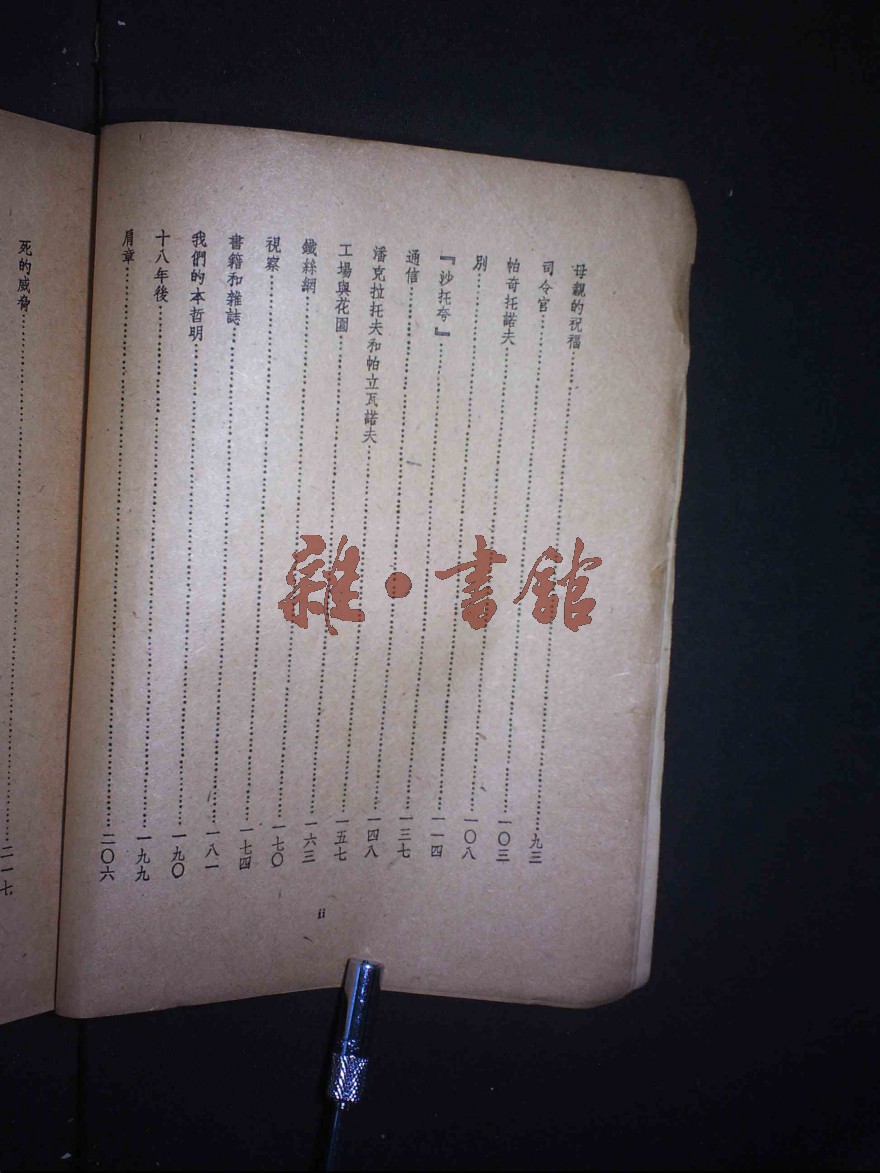 母親的祝福……九三
司令官……一〇三
帕奇托諾夫……一〇八
別……一一四
『沙托夸』……一三七
通信……一四八
潘克拉托夫和帕立瓦諾夫……一五七
工場與花園……一六三
鐵絲網……一七〇
視察……一七四
書籍和雜誌……一八一
我們的本哲明……一九〇
十八年後……一九九
肩章……二〇六
ii
死的威脅……二一七
雜·書館